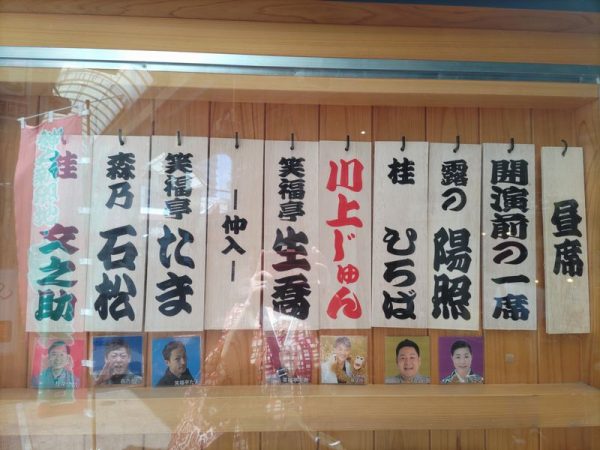 昼席
開演前の一席
露の 陽照
桂 ひろば
川上じゅん
笑福亭 生喬
ー仲入ー
笑福亭 たま
森乃 石松
桂 文之助